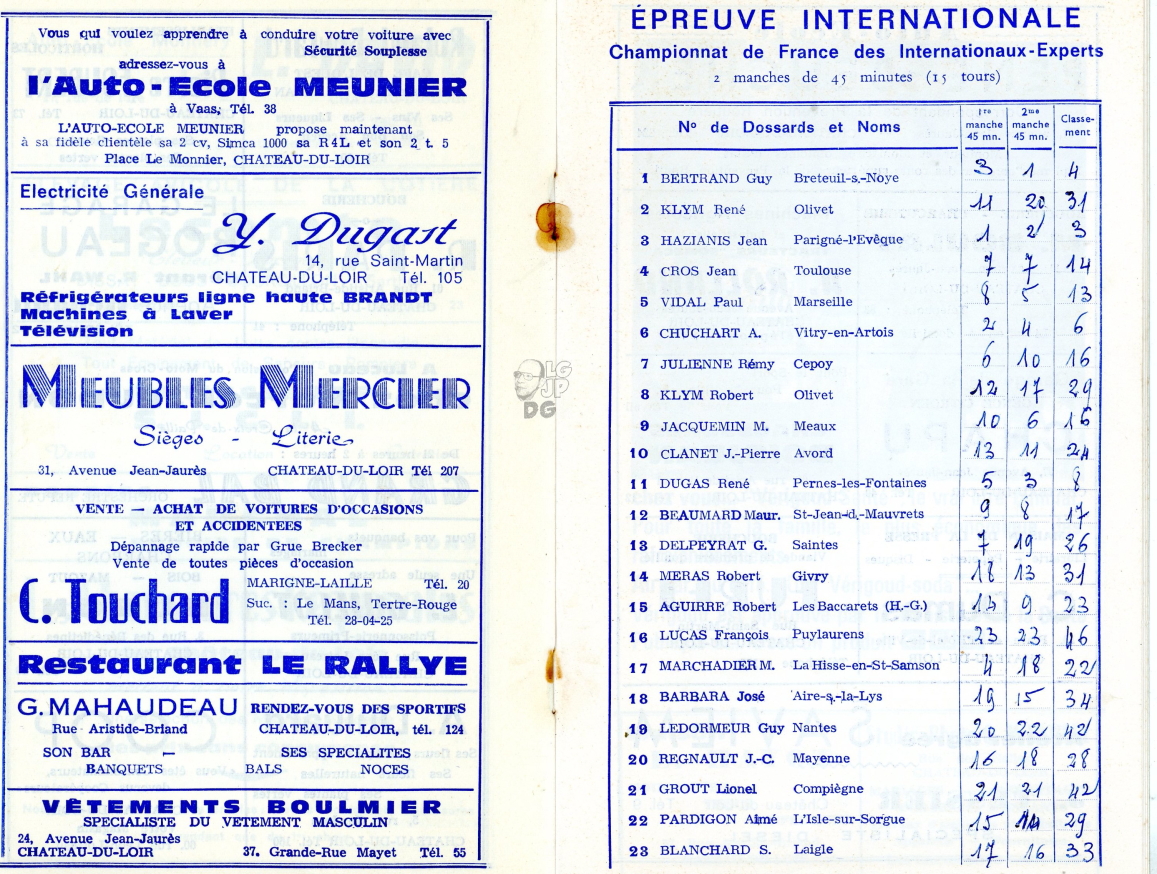 Vous qui voulez apprendre à conduire votre voiture avec
Sécurité Souplesse
adressez-vous à
l'Auto-Ecole MEUNIER
à Vaas, Tél. 38
L'AUTO-ECOLE MEUNIER propose maintenant
à sa fidèle clientèle sa 2 cv, Simca 1000 sa R4L et son 2 t. 5
Place Le Monnier, CHATEAU-DU-LOIR
Electricité Générale
Y. Dugast
14, rue Saint-Martin
CHATEAU-DU-LOIR Tél. 105
Réfrigérateurs ligne haute BRANDT
Machines à Laver
Télévision
MEUBLES MERCIER
Sièges - Literie
31, Avenue Jean-Jaurès CHATEAU-DU-LOIR Tél 207
VENTE — ACHAT DE VOITURES D'OCCASIONS
ET ACCIDENTEES
Dépannage rapide par Grue Brecker
Vente de toutes pièces d'occasion
C. Touchard
MARIGNE-LAILLE Tél. 20
Suc. : Le Mans, Tertre-Rouge
Tél. 28-04-25
Restaurant LE RALLYE
G. MAHAUDEAU RENDEZ-VOUS DES SPORTIFS
Rue Aristide-Briand CHATEAU-DU-LOIR, tél. 124
SON BAR SES SPECIALITES
BANQUETS BALS NOCES
VÊTEMENTS BOULMIER
SPECIALISTE DU VETEMENT MASCULIN
24, Avenue Jean-Jaurès
CHATEAU-DU-LOIR 37, Grande-Rue Mayet Tél. 55
LG
JP
DG
ÉPREUVE INTERNATIONALE
Championnat de France des Internationaux-Experts
2 manches de 45 minutes (15 tours)
N° de Dossards et Noms 1re manche 45 mn. 2me manche 45 mn. Classe-ment
1 BERTRAND Guy Breteuil-s.-Noye 3 1 4
2 KLYM René Olivet 11 20 31
3 HAZIANIS Jean Parigné-l'Evêque 1 2 3
4 CROS Jean Toulouse 7 7 14
5 VIDAL Paul Marseille 8 5 13
6 CHUCHART A. Vitry-en-Artois 2 4 6
7 JULIENNE Rémy Cepoy 6 10 16
8 KLYM Robert Olivet 12 17 29
9 JACQUEMIN M. Meaux 10 6 16
10 CLANET J.-Pierre Avord 13 11 24
11 DUGAS René Pernes-les-Fontaines 5 3 8
12 BEAUMARD Maur. St-Jean-d.-Mauvrets 9 8 17
13 DELPEYRAT G. Saintes 7 19 26
14 MERAS Robert Givry 18 13 31
15 AGUIRRE Robert Les Baccarets (H.-G.) 14 9 23
16 LUCAS François Puylaurens 23 23 46
17 MARCHADIER M. La Hisse-en-St-Samson 4 18 22
18 BARBARA José Aire-s.-la-Lys 19 15 34
19 LEDORMEUR Guy Nantes 20 22 42
20 REGNAULT J.-C. Mayenne 16 18 28
21 GROUT Lionel Compiègne 21 21 42
22 PARDIGON Aimé L'Isle-sur-Sorgue 15 14 29
23 BLANCHARD S. Laigle 17 16 33